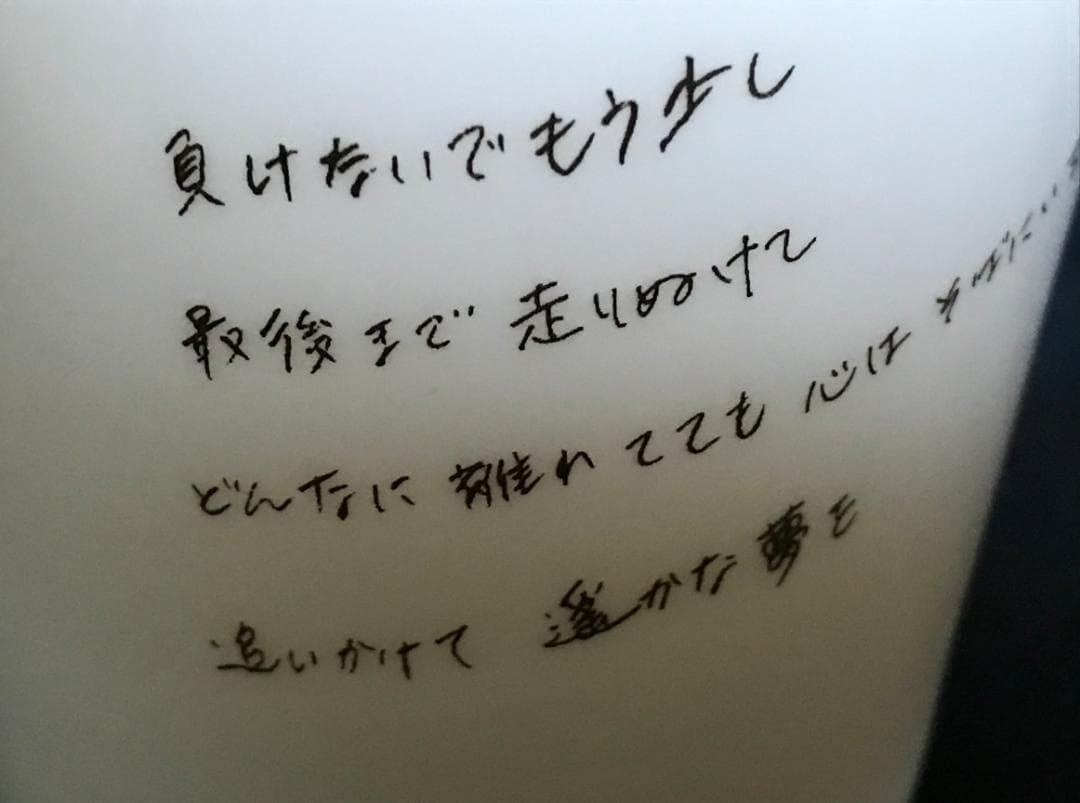 負けないでもう少し
最後まで 走りぬけて
どんなに 離れてても 心は そばにい
追いかけて 遥かな夢を